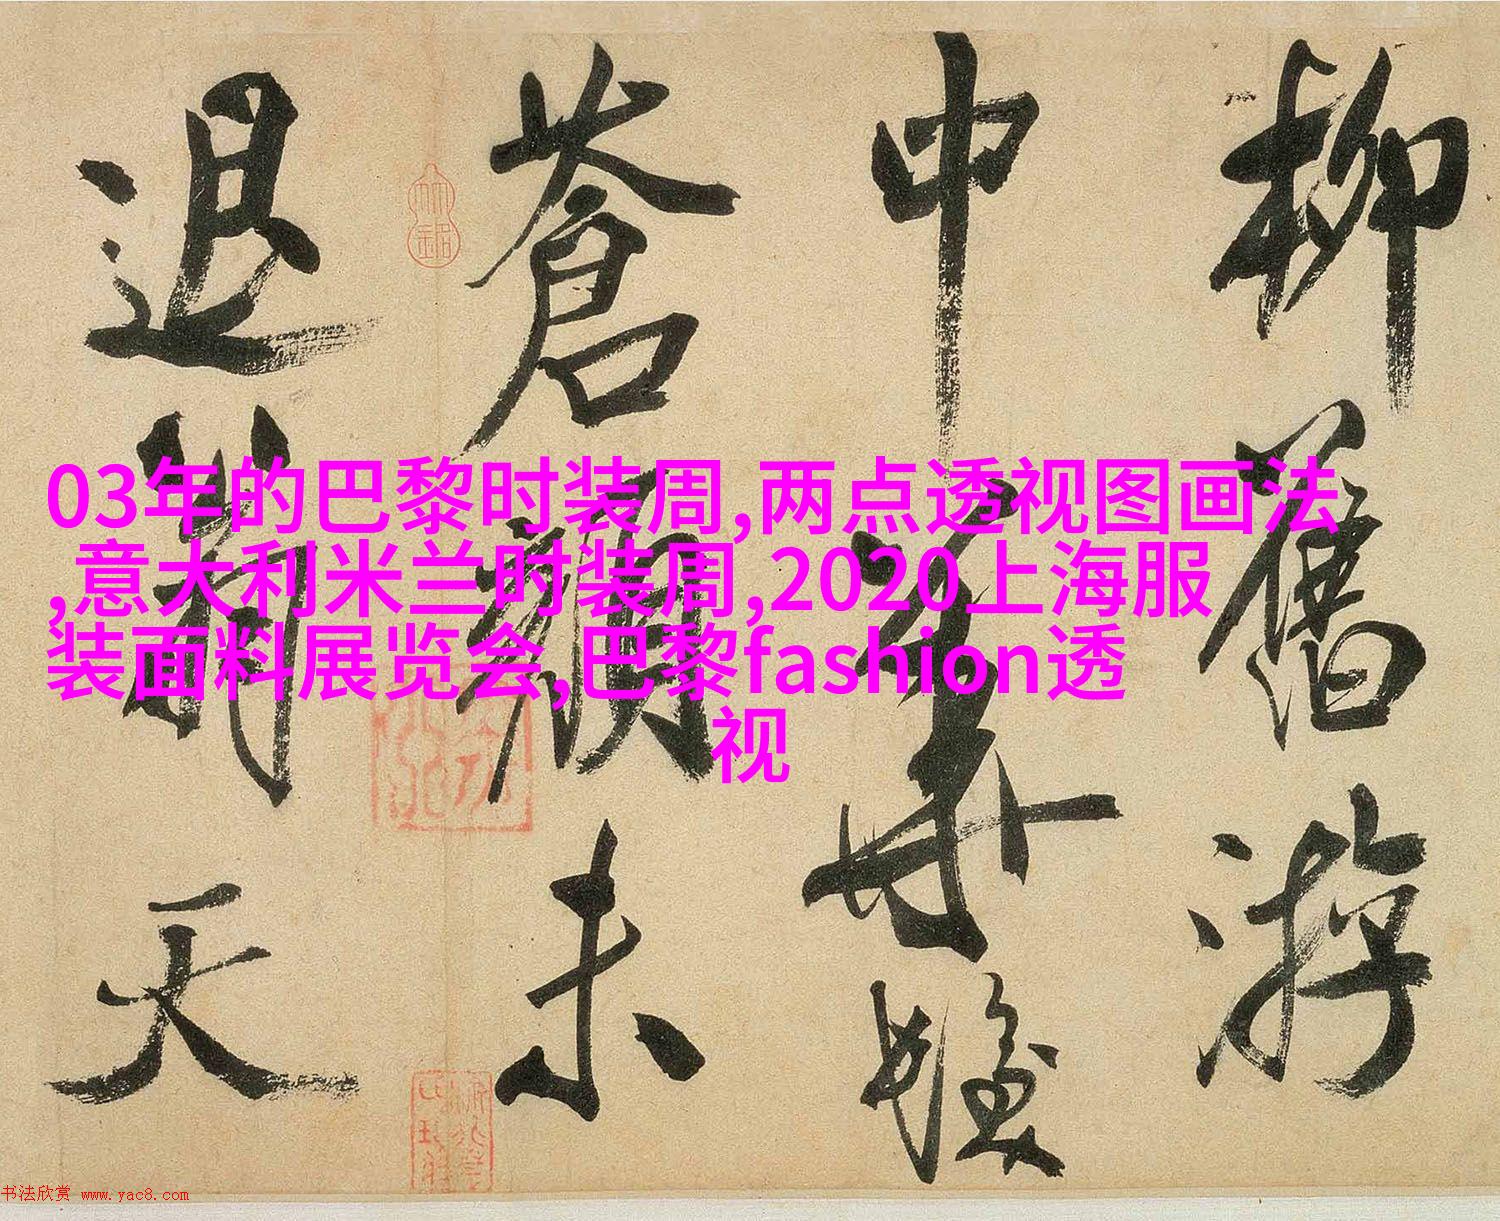 柳舊游
中
蒼顏未
退天
03年的巴黎时装周,两点透视图画法
,意大利米兰时装周,2020上海服
装面料展览会,巴黎fashion透
视
书法欣赏 www.yac8.com